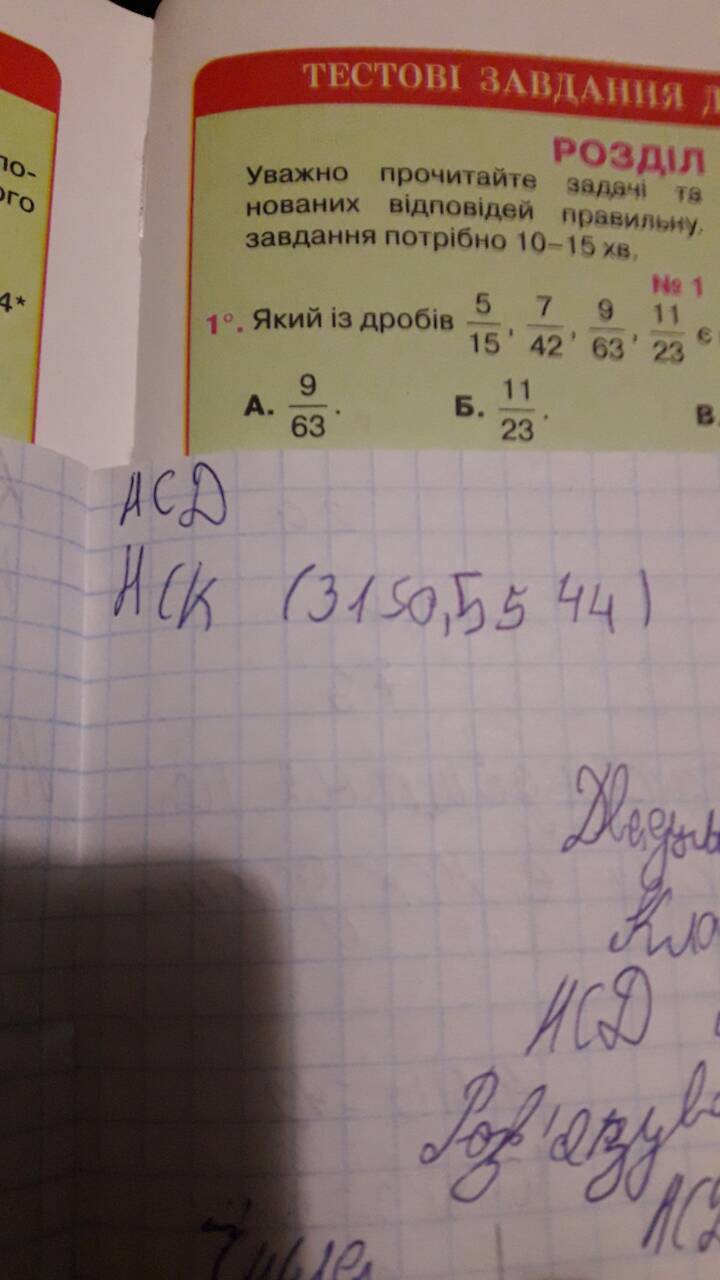 по-
ого
4*
ТЕСТОВІ ЗАВДАННЯ Д
РОЗДІЛ
Уважно прочитайте задачі та
нованих відповідей правильну.
завдання потрібно 10–15 хв.
№ 1
1°. Який із дробів 5/15, 7/42, 9/63, 11/23 є
А. 9/63. Б. 11/23. В.
НСD
НСК (3150,5544)
НСD
Розв'язув
НСD